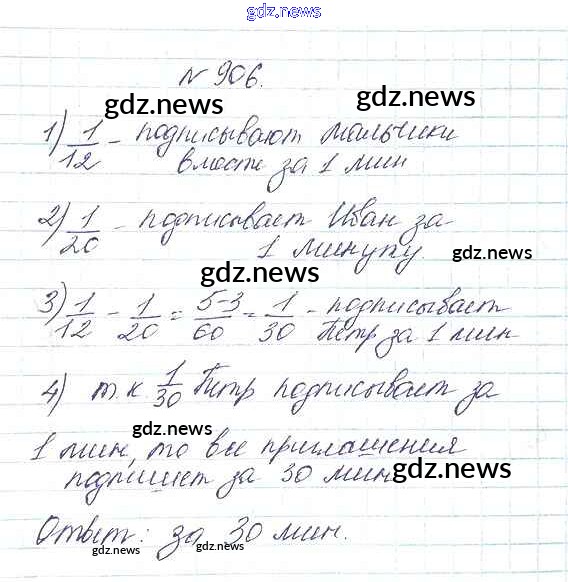 gdz.news
N 906.
gdz.news gdz.news
1) 1/12 - подписывают мальчики
вместе за 1 мин
2) 1/20 - подписывает Иван за
1 минуту.
gdz.news
gdz.news
3) 1/12 - 1/20 = 5-3/60 = 1/30 - подписывает
Пётр за 1 мин
4) т.к. 1/30 Пётр подписывает за
gdz.news
1 мин, то все приглашения
подпишет за 30 мин
gdz.news
Ответ: за 30 мин.
gdz.news gdz.news gdz.news